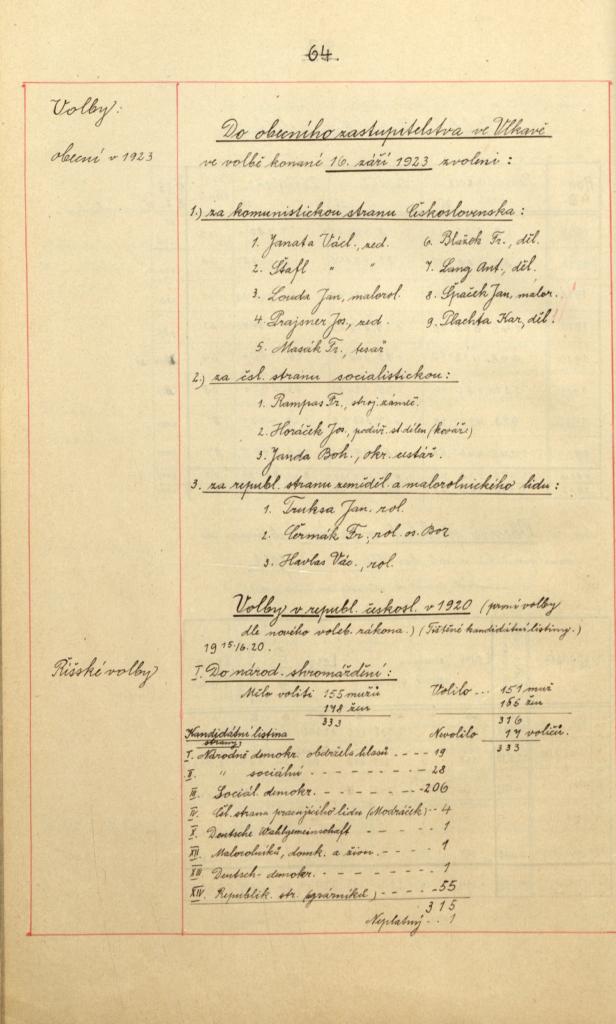 64.
Volby:
obecní v 1923
Do obecního zastupitelstva ve Vlkavě
ve volbě konané 16. září 1923 zvoleni:
1.) za komunistickou stranu Československa:
1. Janata Václ., zed.
2. Štafl " "
3. Louda Jan, malorol.
4. Prajsner Jos., zed.
5. Masák Fr., tesař
6. Blažek Fr., děl.
7. Lang Ant., děl.
8. Špaček Jan, malor.
9. Plachta Kar., děl.
2.) za čsl. stranu socialistickou:
1. Rampas Fr., stroj. zámeč.
2. Horáček Jos., podúř. st. dílen (kovář)
3. Janda Boh., okr. cestář.
3. za republ. stranu zeměděl. a malorolnického lidu:
1. Truksa Jan. rol.
2. Čermák Fr., rol. os. Bor
3. Havlas Vác., rol.
Volby v republ. českosl. v 1920 (první volby
dle nového voleb. zákona.) (Tištěné kandidátní listiny.)
19 15./6. 20.
Říšské volby
I. Do národ. shromáždění:
Mělo voliti 155 mužů
178 žen
333
Volilo... 151 muž
165 žen
316
Nevolilo 17 voličů.
333
Kandidátní listina
strany
I. Národně demokr. obdržela hlasů ---- 19
II. " sociální - - - - - - - 28
III. Sociál. demokr. - - - - - - 206
IV. Čsl. strana pracujícího lidu (Modráček) -- 4
X. Deutsche Wahlgemeinschaft - - - - 1
XII. Malorolníků, domk. a živn. - - - - 1
XIII Deutsch- demokr. - - - - - - 1
XIV. Republik. str. (agrárníků) - - - - 55
315
Neplatný -- 1